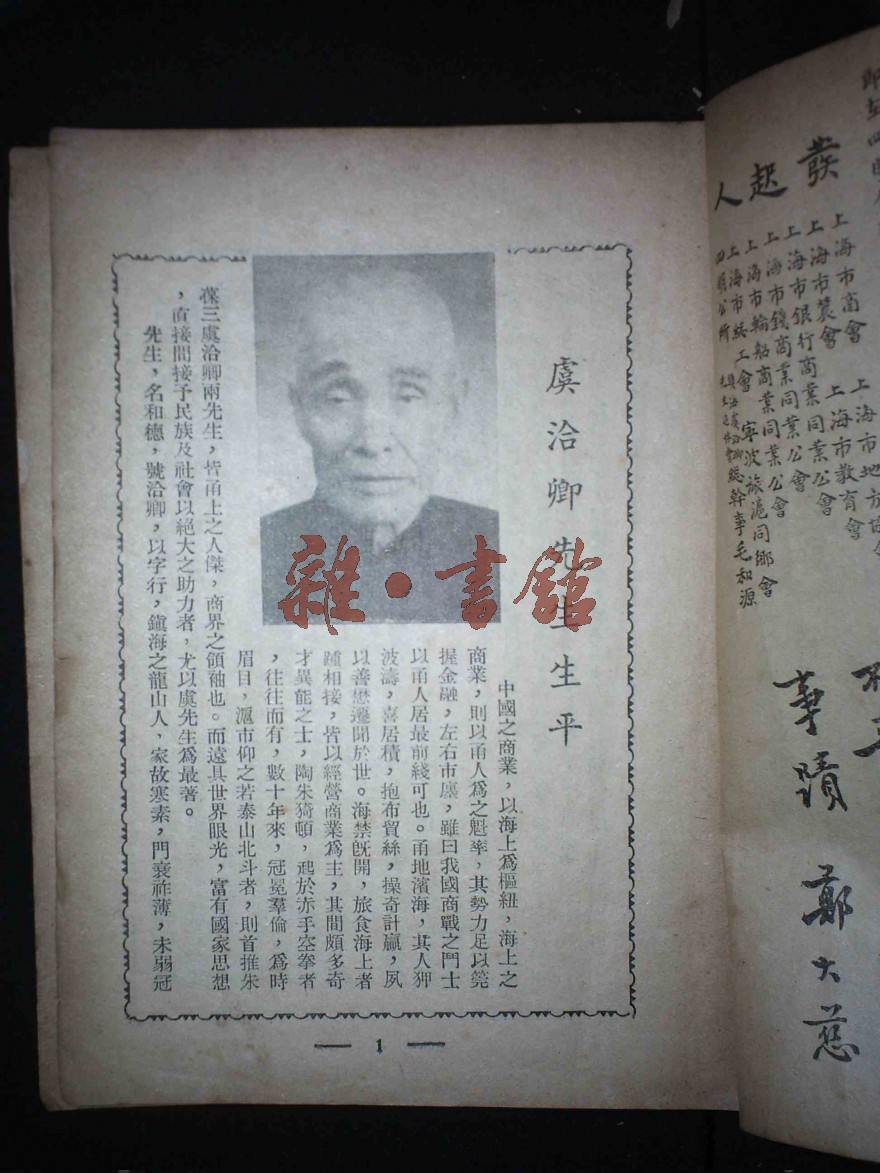 虞洽卿先生生平
中國之商業，以海上爲樞紐，海上之
商業，則以甬人爲之魁率，其勢力足以筦
握金融，左右市廛，雖曰我國商戰之鬥士
以甬人居最前綫可也。甬地濱海，其人狎
波濤，喜居積，抱布貿絲，操奇計贏，夙
以善懋遷聞於世。海禁旣開，旅食海上者
踵相接，皆以經營商業爲主，其間頗多奇
才異能之士，陶朱猗頓，起於赤手空拳者
，往往而有，數十年來，冠冕羣倫，爲時
眉目，滬市仰之若泰山北斗者，則首推朱
葆三虞洽卿兩先生，皆甬上之人傑，商界之領袖也。而遠具世界眼光，富有國家思想
，直接間接予民族及社會以絕大之助力者，尤以虞先生爲最著。
先生，名和德，號洽卿，以字行，鎭海之龍山人，家故寒素，門衰祚薄，未弱冠
1
雜·書館
發起人
上海市商會 上海市地方協會
上海市農會 上海市教育會
上海市銀行商業同業公會
上海市錢商業同業公會
上海市輪船商業同業公會 寧波旅滬同鄉會
上海市總工會 總幹事毛和源
四明公所
事蹟
鄭大慈